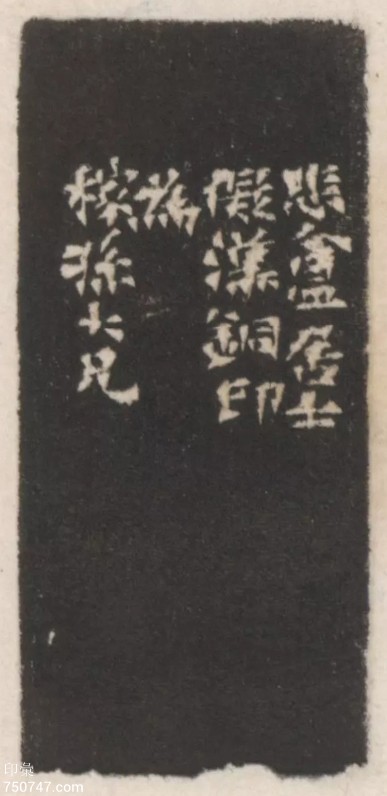 悲盦居士
儗漢銅印
為
稼孫大兄
印彙
750747.com